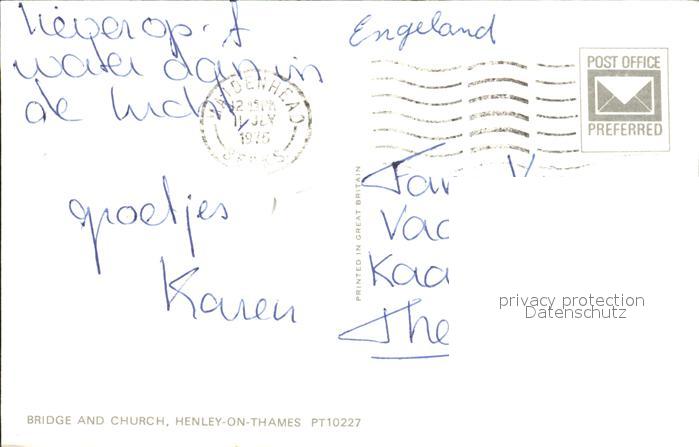 liever op 't
water dan in
de lucht
groetjes
Karen
Engeland
MAIDENHEAD
1976
BERKS
POST OFFICE
PREFERRED
PRINTED IN GREAT BRITAIN
Fam
Vac
Kaa
The
privacy protection
Datenschutz
BRIDGE AND CHURCH, HENLEY-ON-THAMES PT10227